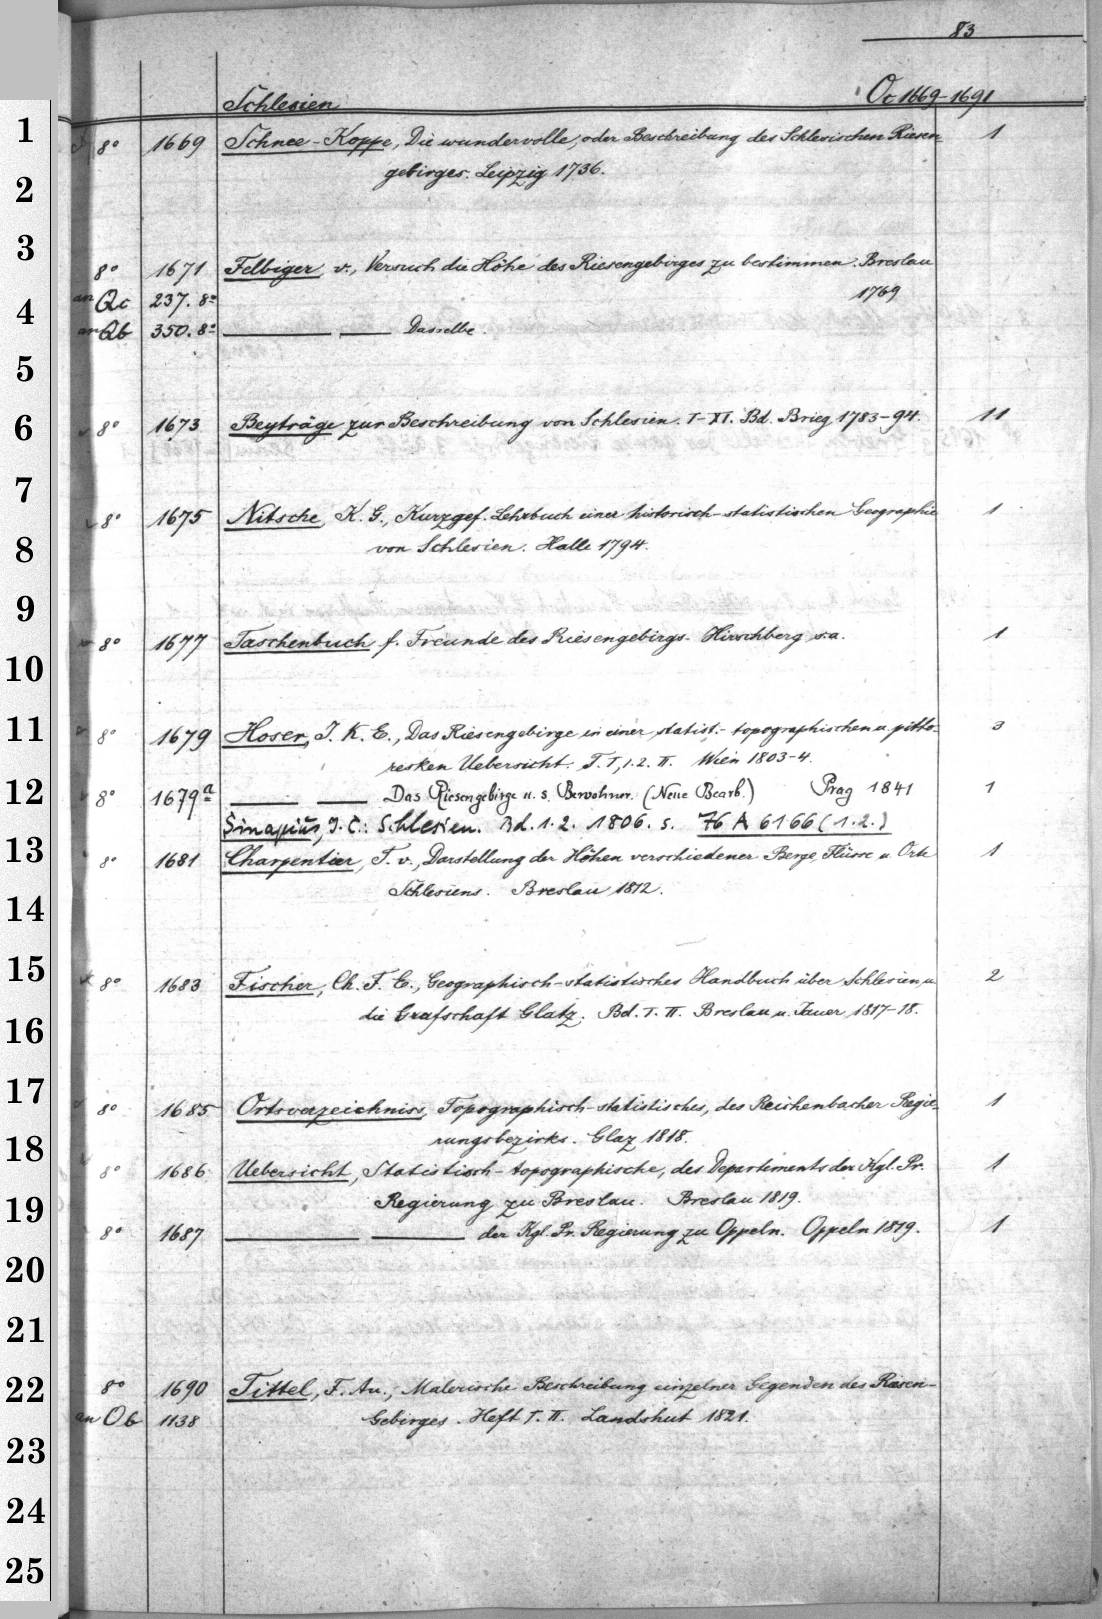 83
Schlesien Oc 1669-1691
1
8° 1669 Schnee-Koppe, Die wundervolle, oder Beschreibung des Schlesischen Riesen- 1
2
gebirges. Leipzig 1736.
3
8° 1671 Felbiger, v., Versuch die Höhe des Riesengebirges zu bestimmen. Breslau
an Qc 237. 8° 1769
4
an Qb 350. 8° Dasselbe.
5
6
8° 1673 Beyträge zur Beschreibung von Schlesien. I-XI. Bd. Brieg 1783-94. 11
7
8° 1675 Nitsche, K. G., Kurzgef. Lehrbuch einer historisch-statistischen Geographie 1
8
von Schlesien. Halle 1794.
9
8° 1677 Taschenbuch f. Freunde des Riesengebirgs. Hirschberg s.a. 1
10
11
8° 1679 Hoser, J. K. E., Das Riesengebirge in einer statist.-topographischen u. pitto- 3
resken Uebersicht. T. I, 1.2. II. Wien 1803-4.
12
8° 1679a Das Riesengebirge u. s. Bewohner. (Neue Bearb.) Prag 1841 1
Sinapius, J. C.: Schlesien. Bd. 1.2. 1806. s. 76 A 6166 (1.2.)
13
8° 1681 Charpentier, T. v., Darstellung der Höhen verschiedener Berge, Flüsse u. Orte 1
Schlesiens. Breslau 1812.
14
15
8° 1683 Fischer, Ch. F. E., Geographisch-statistisches Handbuch über Schlesien u. 2
die Grafschaft Glatz. Bd. I. II. Breslau u. Jauer 1817-18.
16
17
8° 1685 Ortsverzeichniss, Topographisch-statistisches, des Reichenbacher Regie- 1
rungsbezirks. Glaz 1818.
18
8° 1686 Uebersicht, Statistisch-topographische, des Departements der Kgl. Pr. 1
Regierung zu Breslau. Breslau 1819.
19
8° 1687 der Kgl. Pr. Regierung zu Oppeln. Oppeln 1819. 1
20
21
22
8° 1690 Tittel, F. Au., Malerische Beschreibung einzelner Gegenden des Riesen-
an Ob 1138 Gebirges. Heft I. II. Landshut 1821.
23
24
25